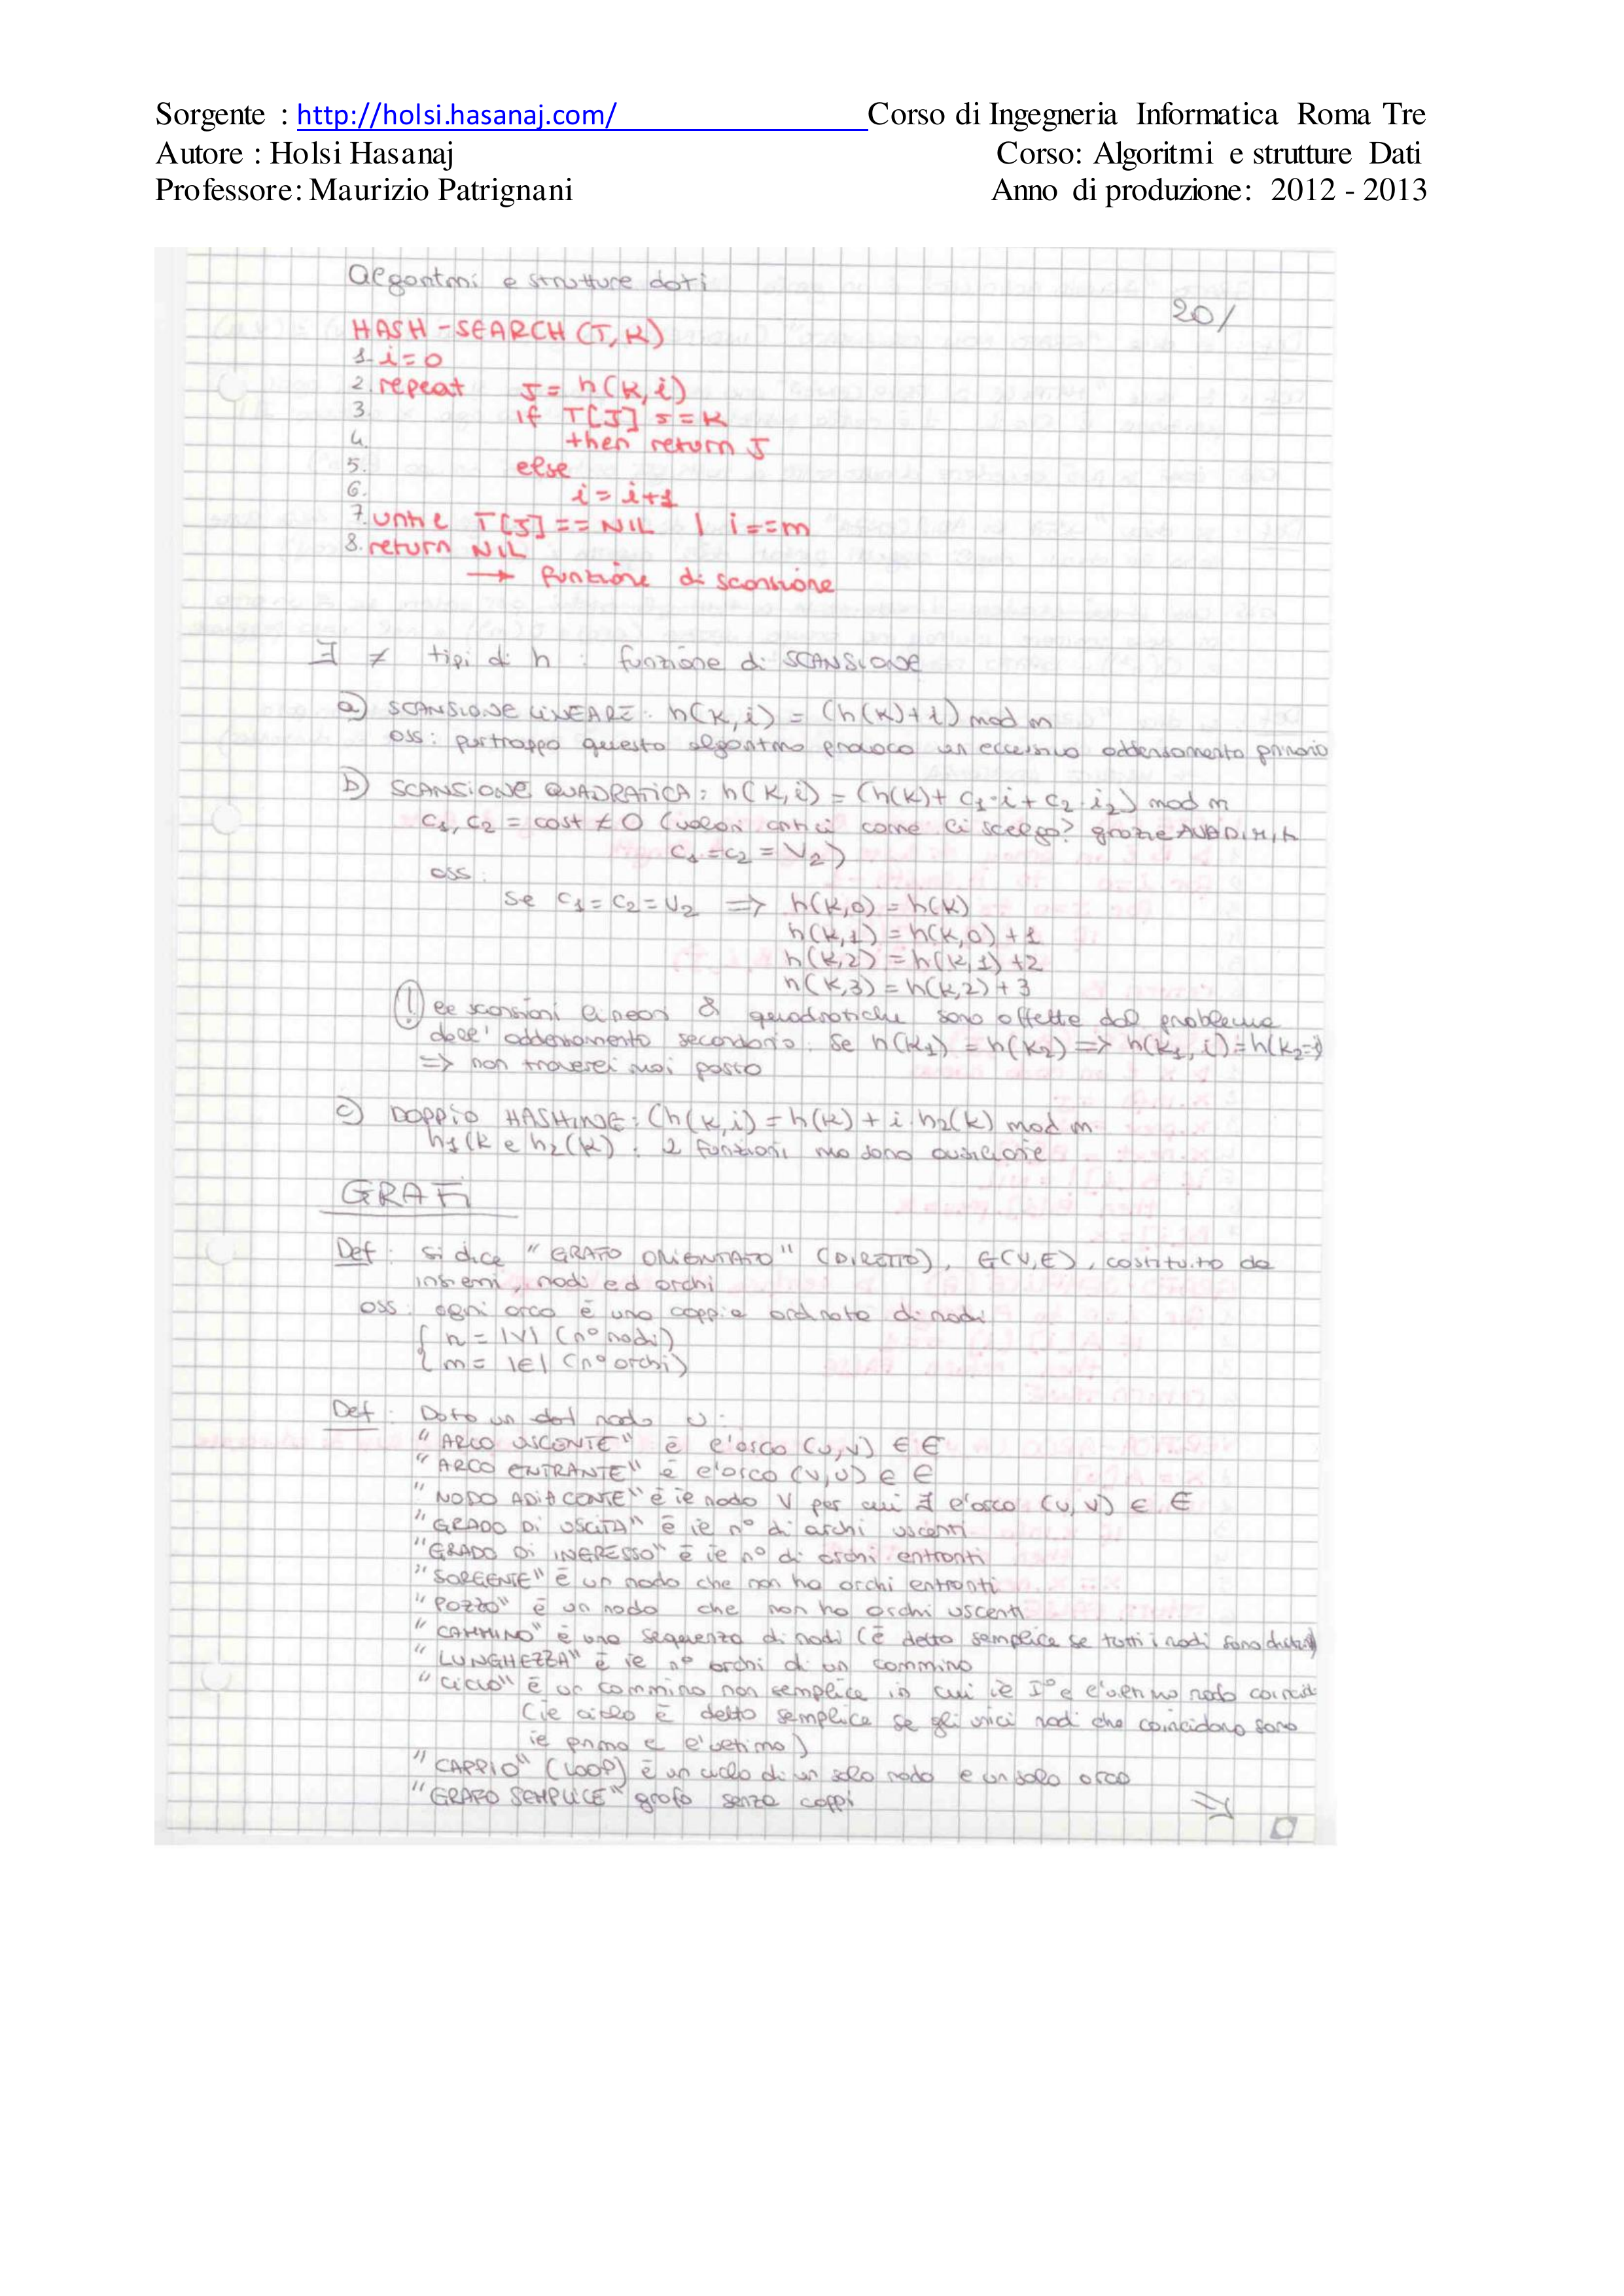 Sorgente : http://holsi.hasanaj.com/ Corso di Ingegneria Informatica Roma Tre
Autore : Holsi Hasanaj Corso: Algoritmi e strutture Dati
Professore: Maurizio Patrignani Anno di produzione: 2012 - 2013
Algoritmi e strutture dati
20/
HASH-SEARCH (T, K)
1. i=0
2. repeat J = h(K,i)
3. if T[J] == K
4. then return J
5. else
6. i = i+1
7. until T[J] == NIL | i==m
8. return NIL
→ funzione di scansione
∃ ≠ tipi di h : funzione di SCANSIONE
a) SCANSIONE LINEARE: h(K,i) = (h(K)+i) mod m
oss: purtroppo questo algoritmo provoca un eccessivo addensamento primario
b) SCANSIONE QUADRATICA: h(K,i) = (h(K)+ c1·i + c2·i2) mod m
c1, c2 = cost ≠ 0 (valori critici come li scelgo? grazie
c1 = c2 = 1/2)
oss:
se c1 = c2 = 1/2 => h(K,0) = h(K)
h(K,1) = h(K,0) + 1
h(K,2) = h(K,1) + 2
h(K,3) = h(K,2) + 3
(!) le scansioni lineari & quadratiche sono affette dal problema
dell' addensamento secondario. Se h(K1) = h(K2) => h(K1, i) = h(K2=i)
=> non troverei mai posto
c) DOPPIO HASHING: (h(K,i) = h(K) + i·h2(K) mod m
h1(K e h2(K) : 2 funzioni ma sono
GRAFI
Def: si dice "GRAFO ORIENTATO" (DIRETTO), G(V,E), costituito da
insiemi, nodi ed archi
oss: ogni arco è una coppia ordinata di nodi
{ n = |V| (n° nodi)
{ m = |E| (n° archi)
Def: Dato un nodo u:
"ARCO USCENTE" è l'arco (u,v) ∈ E
"ARCO ENTRANTE" è l'arco (v,u) ∈ E
"NODO ADIACENTE" è il nodo V per cui ∃ l'arco (u,v) ∈ E
"GRADO DI USCITA" è il n° di archi uscenti
"GRADO DI INGRESSO" è il n° di archi entranti
"SORGENTE" è un nodo che non ha archi entranti
"POZZO" è un nodo che non ha archi uscenti
"CAMMINO" è una sequenza di nodi (è detto semplice se tutti i nodi sono distinti)
"LUNGHEZZA" è il n° archi di un cammino
"CICLO" è un cammino non semplice in cui il I° e l'ultimo nodo coincid
(il ciclo è detto semplice se gli unici nodi che coincidono sono
il primo e l'ultimo)
"CAPPIO" (LOOP) è un ciclo di un solo nodo e un solo arco
"GRAFO SEMPLICE" grafo senza cappi